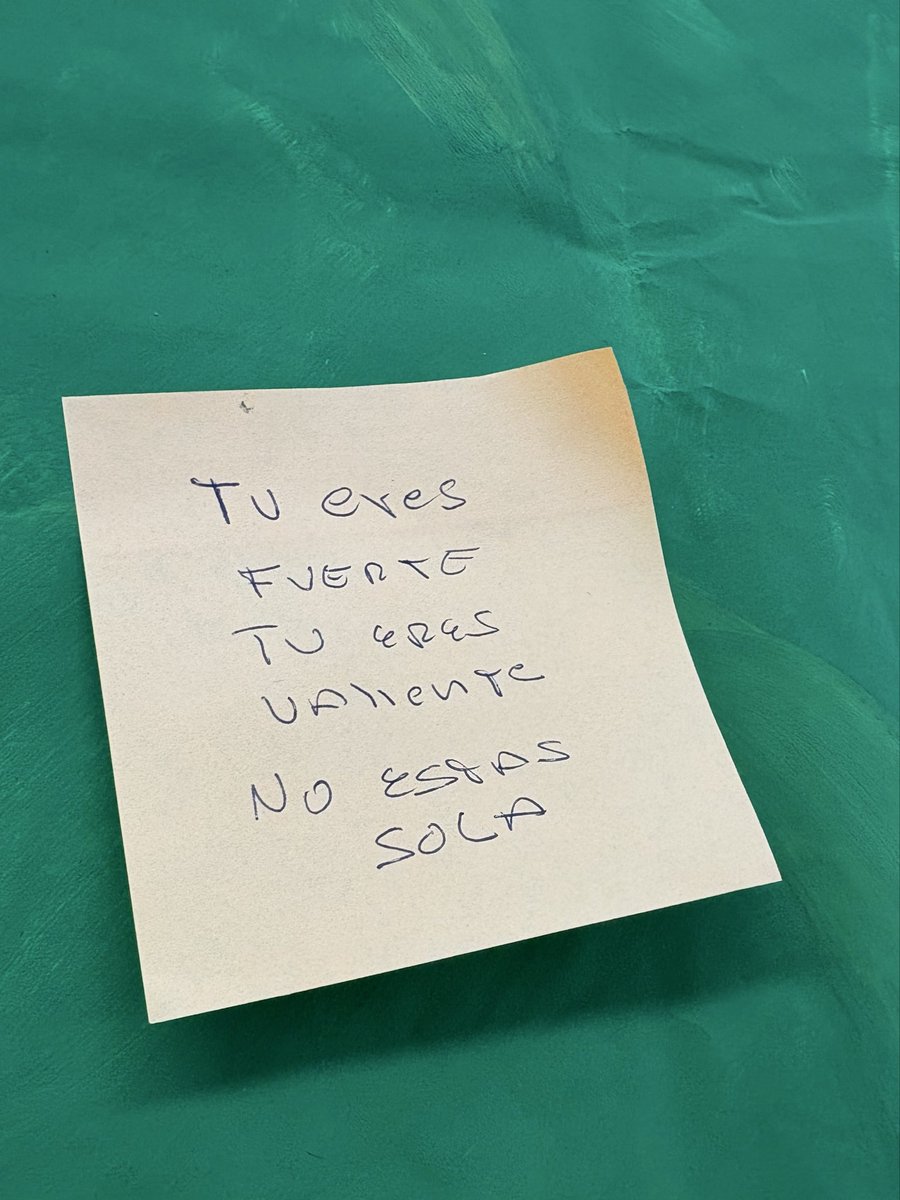 TU eres
FUERTE
TU ERES
VAlIenTe
NO ESTAS
SOLA